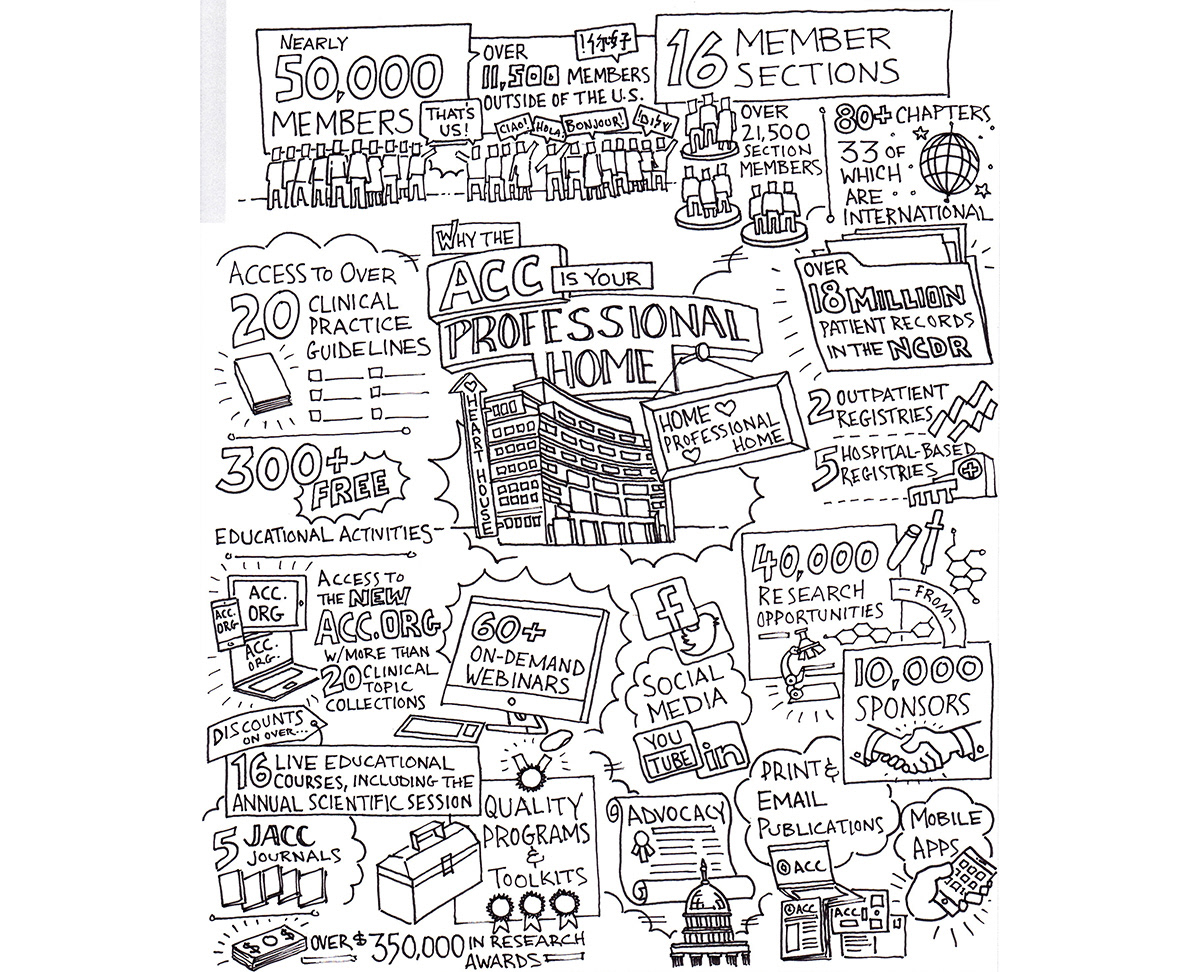 NEARLY
50,000
MEMBERS
THAT'S
US!
OVER
11,500 MEMBERS
OUTSIDE OF THE U.S.
CIAO!
HOLA!
BONJOUR!
שלום!
16 MEMBER
SECTIONS
OVER
21,500
SECTION
MEMBERS
80+ CHAPTERS
33 OF
WHICH
ARE
INTERNATIONAL
WHY THE
ACC
IS YOUR
PROFESSIONAL
HOME
HEART HOUSE
HOME
PROFESSIONAL
HOME
ACCESS TO OVER
20 CLINICAL
PRACTICE
GUIDELINES
300+
FREE
EDUCATIONAL ACTIVITIES
OVER
18 MILLION
PATIENT RECORDS
IN THE NCDR
2 OUTPATIENT
REGISTRIES
5 HOSPITAL-BASED
REGISTRIES
ACC.
ORG
ACC.
ORG
ACC.
ORG.
ACCESS TO
THE NEW
ACC.ORG
W/MORE THAN
20 CLINICAL
TOPIC
COLLECTIONS
60+
ON-DEMAND
WEBINARS
f
SOCIAL
MEDIA
YOU
TUBE
in
40,000
RESEARCH
OPPORTUNITIES
-FROM-
10,000
SPONSORS
DISCOUNTS
ON OVER...
16 LIVE EDUCATIONAL
COURSES, INCLUDING THE
ANNUAL SCIENTIFIC SESSION
5 JACC
JOURNALS
QUALITY
PROGRAMS
&
TOOLKITS
ADVOCACY
PRINT &
EMAIL
PUBLICATIONS
ACC
ACC
ACC
MOBILE
APPS
$ $
OVER $350,000 IN RESEARCH
AWARDS